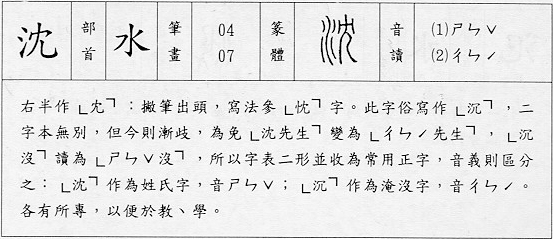 沈 部首 水 筆畫 04 07 篆體 沈 音讀 (1)ㄕㄣˇ (2)ㄔㄣˊ
右半作「冘」:撇筆出頭,寫法參「忱」字。此字俗寫作「沉」,二
字本無別,但今則漸歧,為免「沈先生」變為「ㄔㄣˊ先生」,「沉
沒」讀為「ㄕㄣˇ沒」,所以字表二形並收為常用正字,音義則區分
之:「沈」作為姓氏字,音ㄕㄣˇ;「沉」作為淹沒字,音ㄔㄣˊ。
各有所專,以便於教、學。